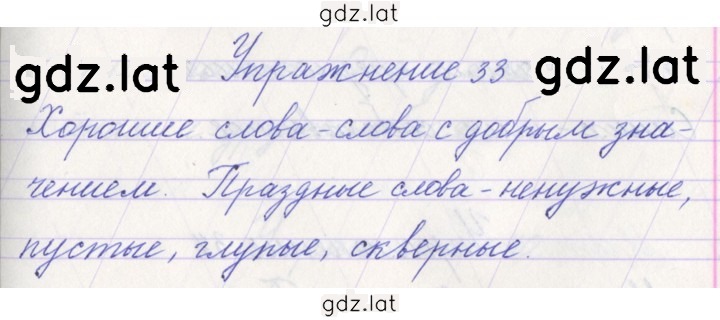 gdz.lat
gdz.lat Упражнение 33 gdz.lat
Хорошие слова - слова с добрым зна-
чением. Праздные слова - ненужные,
пустые, глупые, скверные.
gdz.lat